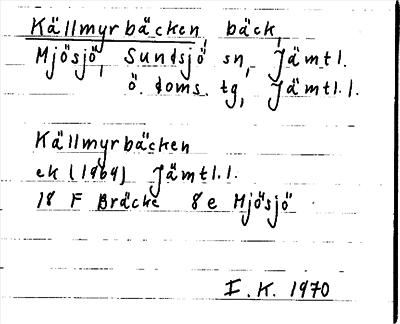 Källmyrbäcken, bäck,
Mjösjö, Sundsjö sn, Jämtl.
ö. doms. tg, Jämtl. l.
Källmyrbäcken
ek (1969) Jämtl. l.
18 F Bräcke 8 e Mjösjö
I. K. 1970